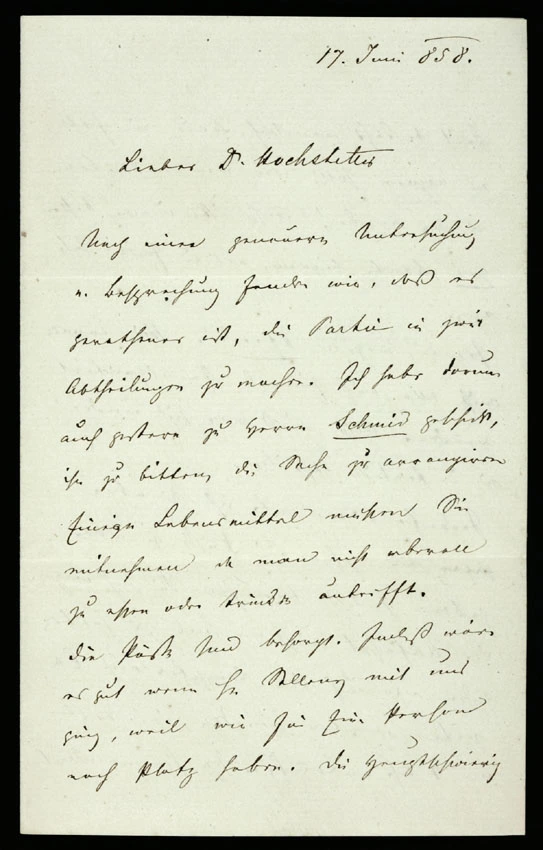 17. Juni 858.
Lieber Dr. Hochstetter
Nach einer genauern Untersuchung
u. Besprechung fanden wir, daß es
gerathener ist, die Partie in zwei
Abtheilungen zu machen. Ich habe darum
auch gestern zu Herrn Schmid geschickt,
ihn zu bitten, die Sache zu arrangiren
Einige Lebensmittel müssen Sie
mitnehmen da man nicht überall
zu essen oder trinken antrifft.
die Pässe sind besorgt. Indeß wäre
es gut wenn H. Selleny mit uns
ging, weil wir für Eine Person
noch Platz haben. Die Hauptschwierig